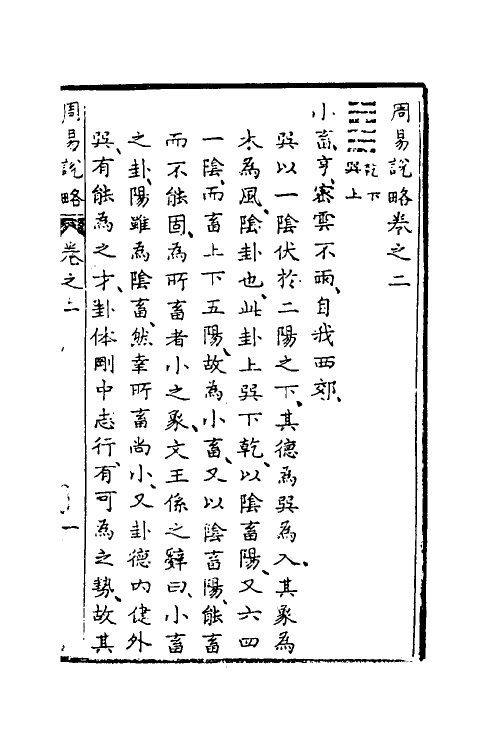 周易說略卷之二
䷈ 乾下巽上
小畜亨、密雲不雨、自我西郊、
巽以一陰伏於二陽之下、其德為巽為入、其象為
木為風、陰卦也、此卦上巽下乾、以陰畜陽、又六四
一陰、而畜上下五陽、故為小畜、又以陰畜陽、能畜
而不能固、為所畜者小之象、文王係之辭曰、小畜
之卦、陽雖為陰畜、然幸所畜尚小、又卦德內健外
巽、有能為之才、卦体剛中志行、有可為之勢、故其
周易說略 卷之二 一